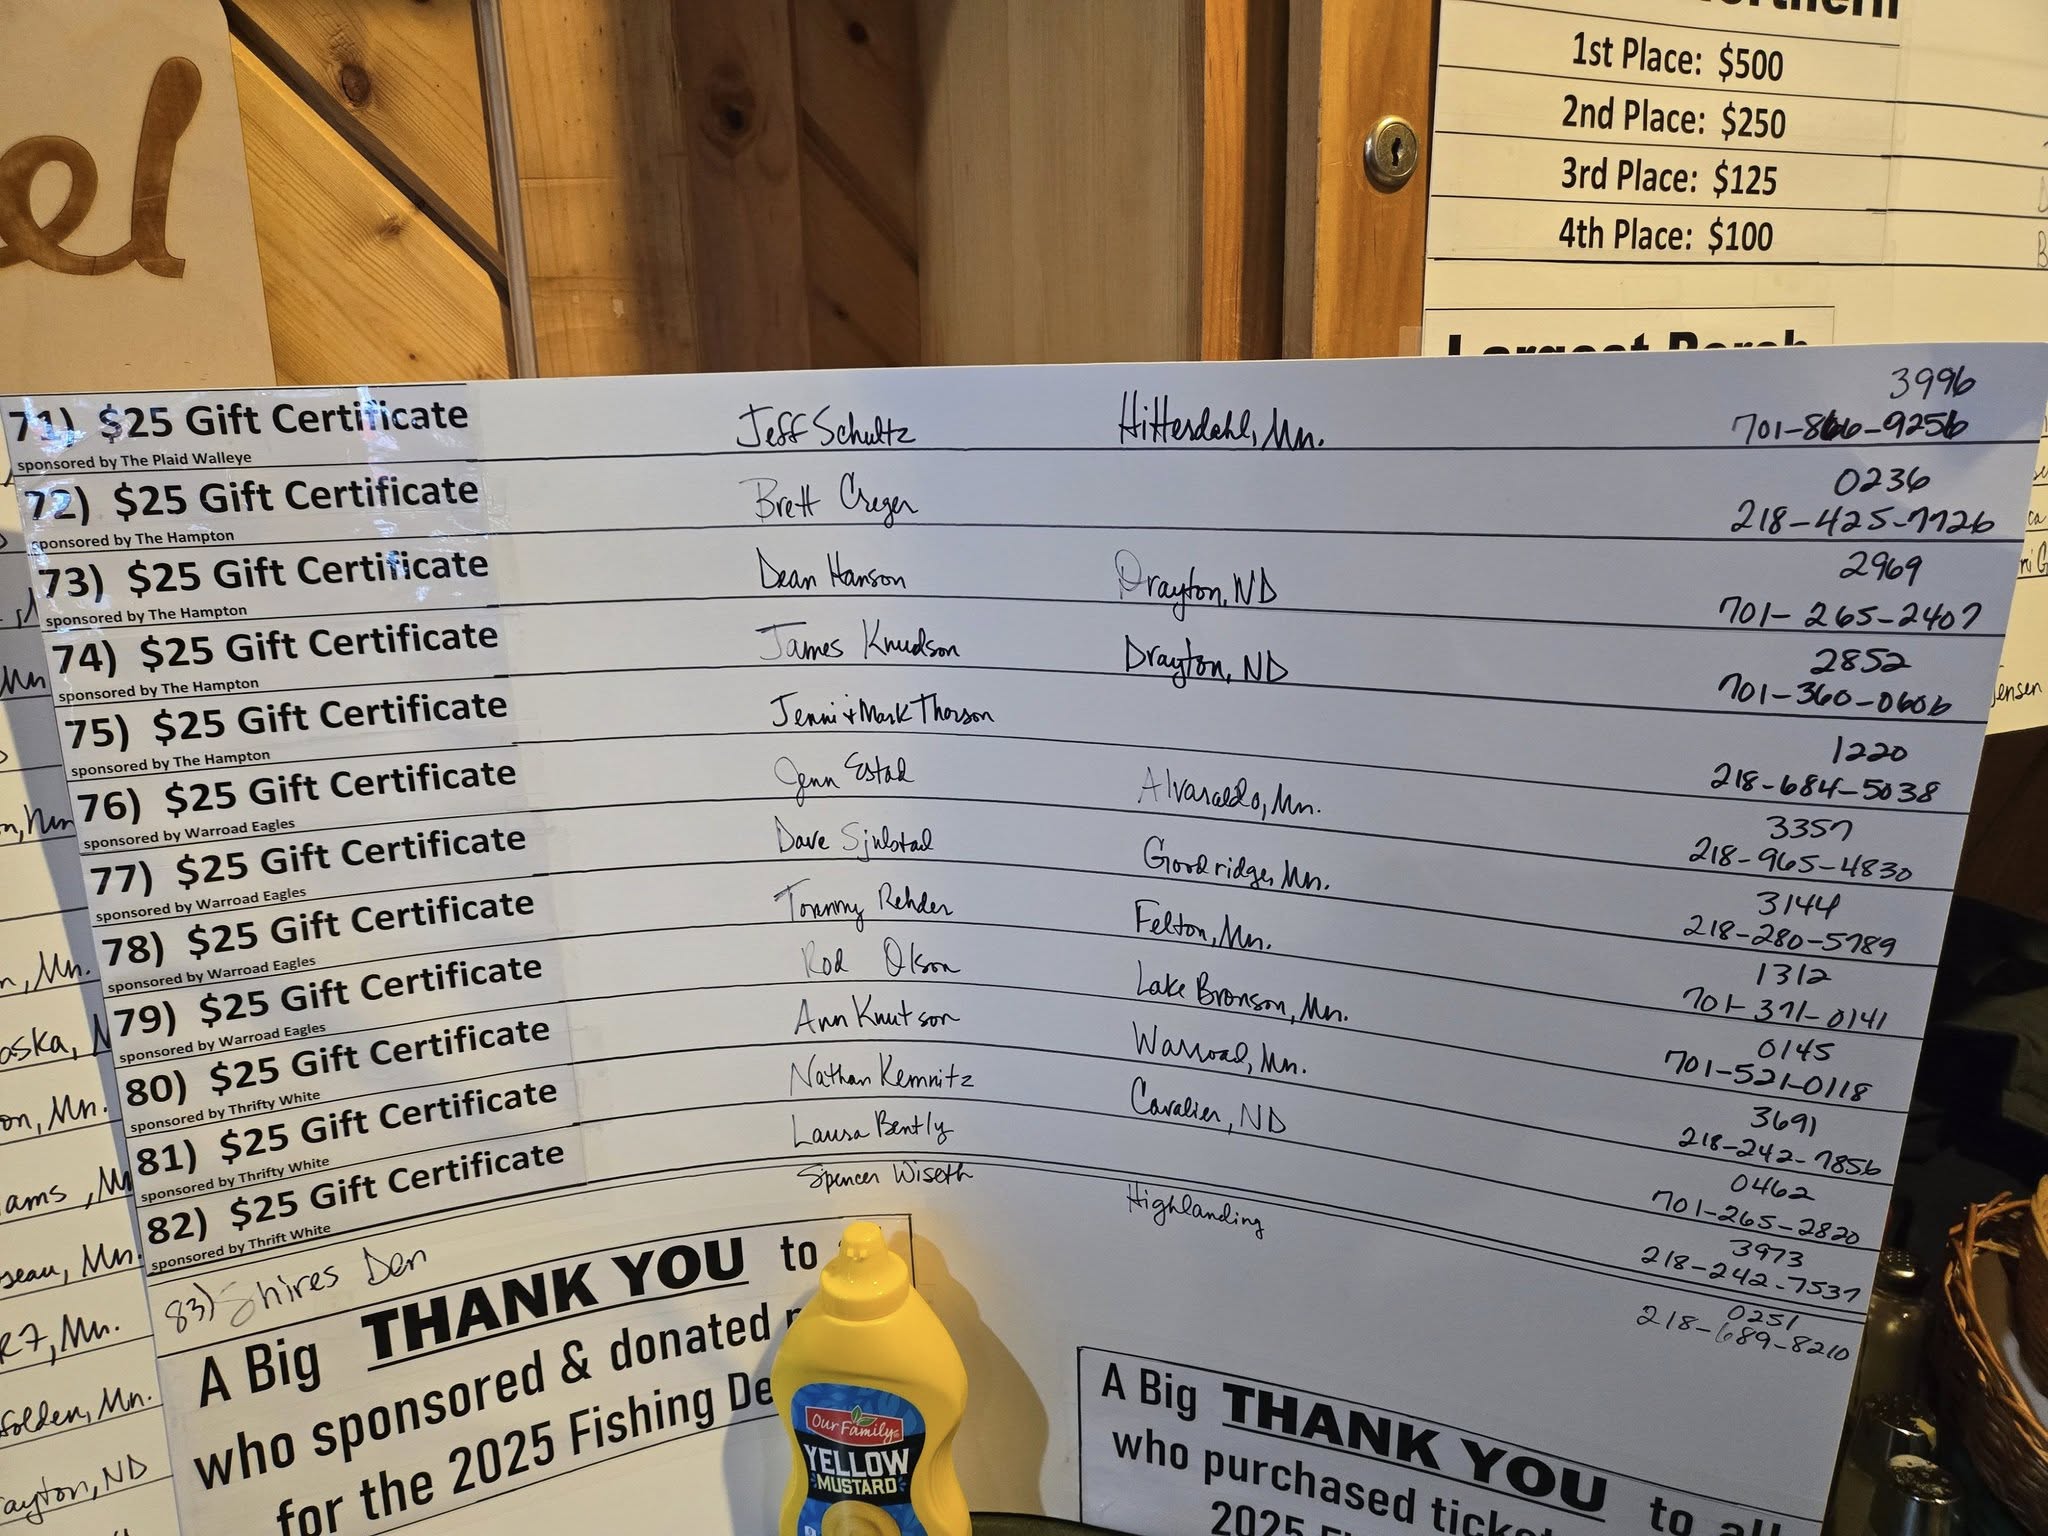 el
1st Place: $500
2nd Place: $250
3rd Place: $125
4th Place: $100
Largest Perch
71) $25 Gift Certificate Jeff Schultz Hitterdahl, Mn. 3996
sponsored by The Plaid Walleye 701-866-9256
72) $25 Gift Certificate Brett Creger 0236
sponsored by The Hampton 218-425-7726
73) $25 Gift Certificate Dean Hanson Drayton, ND 2969
sponsored by The Hampton 701-265-2407
74) $25 Gift Certificate James Knudson Drayton, ND 2852
sponsored by The Hampton 701-360-0606
75) $25 Gift Certificate Jenni + Mark Thorson 1220
sponsored by The Hampton 218-684-5038
76) $25 Gift Certificate Jenn Estad Alvaraldo, Mn. 3357
sponsored by Warroad Eagles 218-965-4830
77) $25 Gift Certificate Dave Sjulstad Goodridge, Mn. 3144
sponsored by Warroad Eagles 218-280-5789
78) $25 Gift Certificate Tommy Rehder Felton, Mn. 1312
sponsored by Warroad Eagles 701-371-0141
79) $25 Gift Certificate Rod Olson Lake Bronson, Mn. 0145
sponsored by Warroad Eagles 701-521-0118
80) $25 Gift Certificate Ann Knutson Warroad, Mn. 3691
sponsored by Thrifty White 218-242-7856
81) $25 Gift Certificate Nathan Kemnitz Cavalier, ND 0462
sponsored by Thrifty White 701-265-2820
82) $25 Gift Certificate Laura Bently 3973
sponsored by Thrift White 218-242-7537
83) Shires Den Spencer Wiseth Highlanding 0251
218-689-8210
A Big THANK YOU to
who sponsored & donated
for the 2025 Fishing De
OUR FAMILY
YELLOW
MUSTARD
A Big THANK YOU to all
who purchased tick
2025